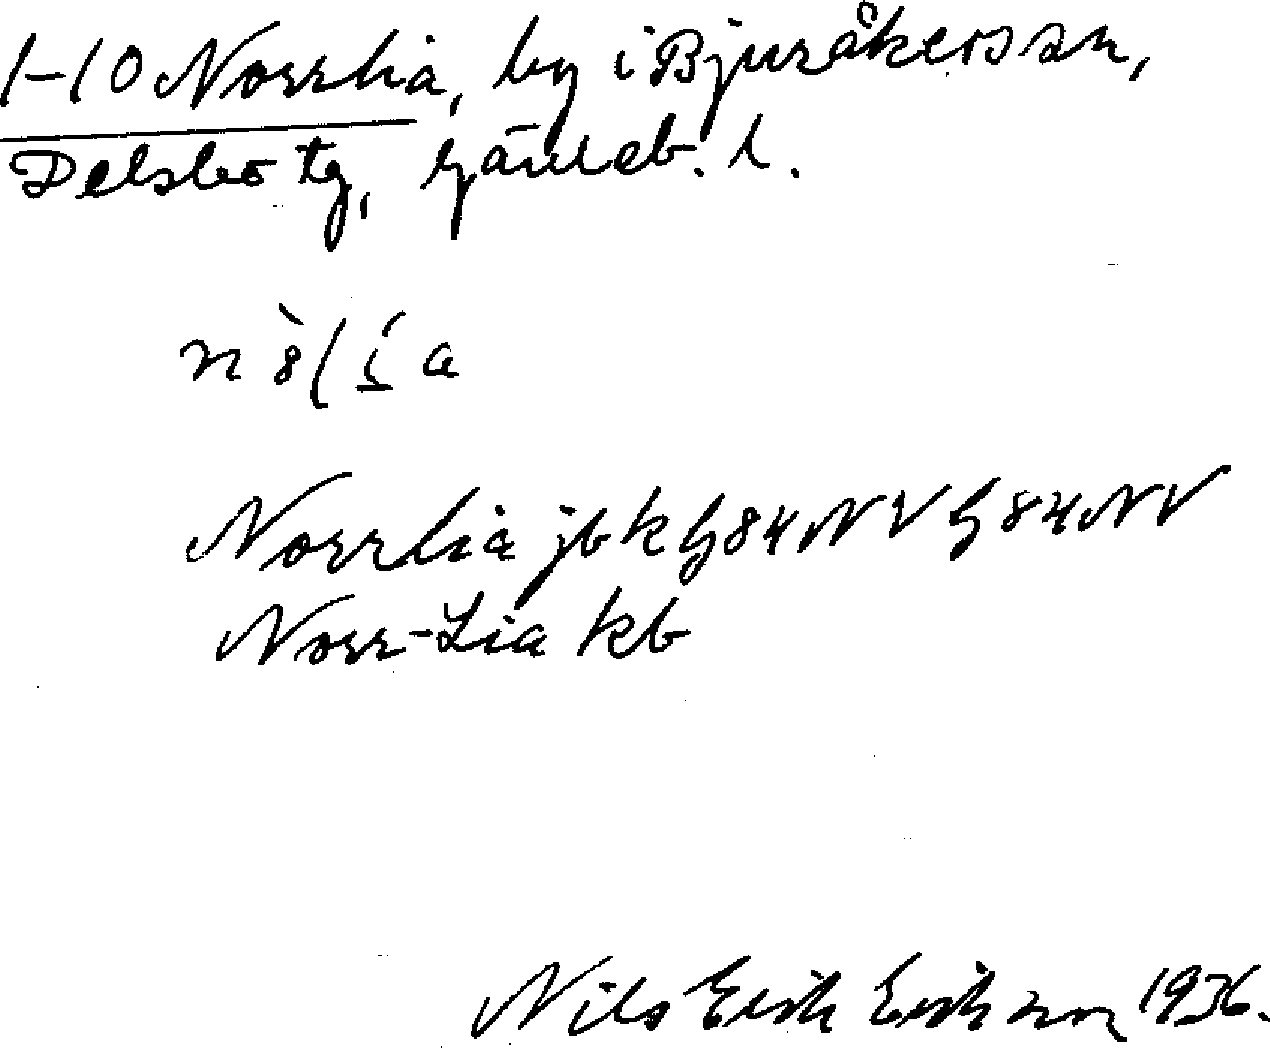 1-10 Norrlia, by i Bjuråkers sn,
Delsbo tg, Gävleb. l.
Norrlia jbk G84NV G84NV
Norr-Lia kb
Nils Erik Erikson 1936.